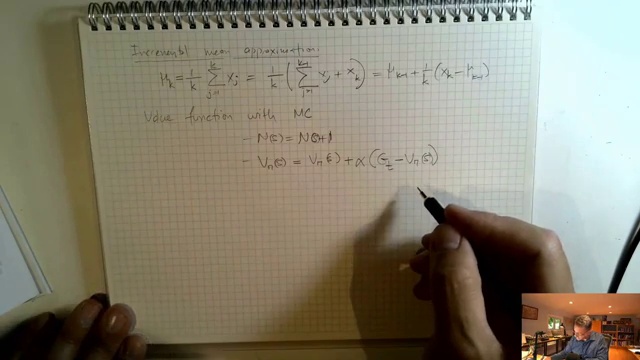 Incremental mean approximation
μ_k = 1/k Σ_{j=1}^{k} x_j = 1/k ( Σ_{j=1}^{k-1} x_j + x_k ) = μ_{k-1} + 1/k ( x_k − μ_{k-1} )
Value function with MC
- N(s) = N(s)+1
- V_π(s) = V_π(s) + α ( G_t − V_π(s) )